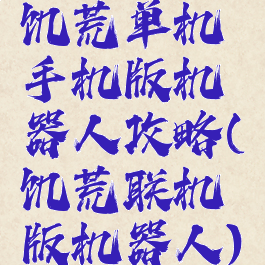 饥荒单机
手机版机
器人攻略(
饥荒联机
版机器人)